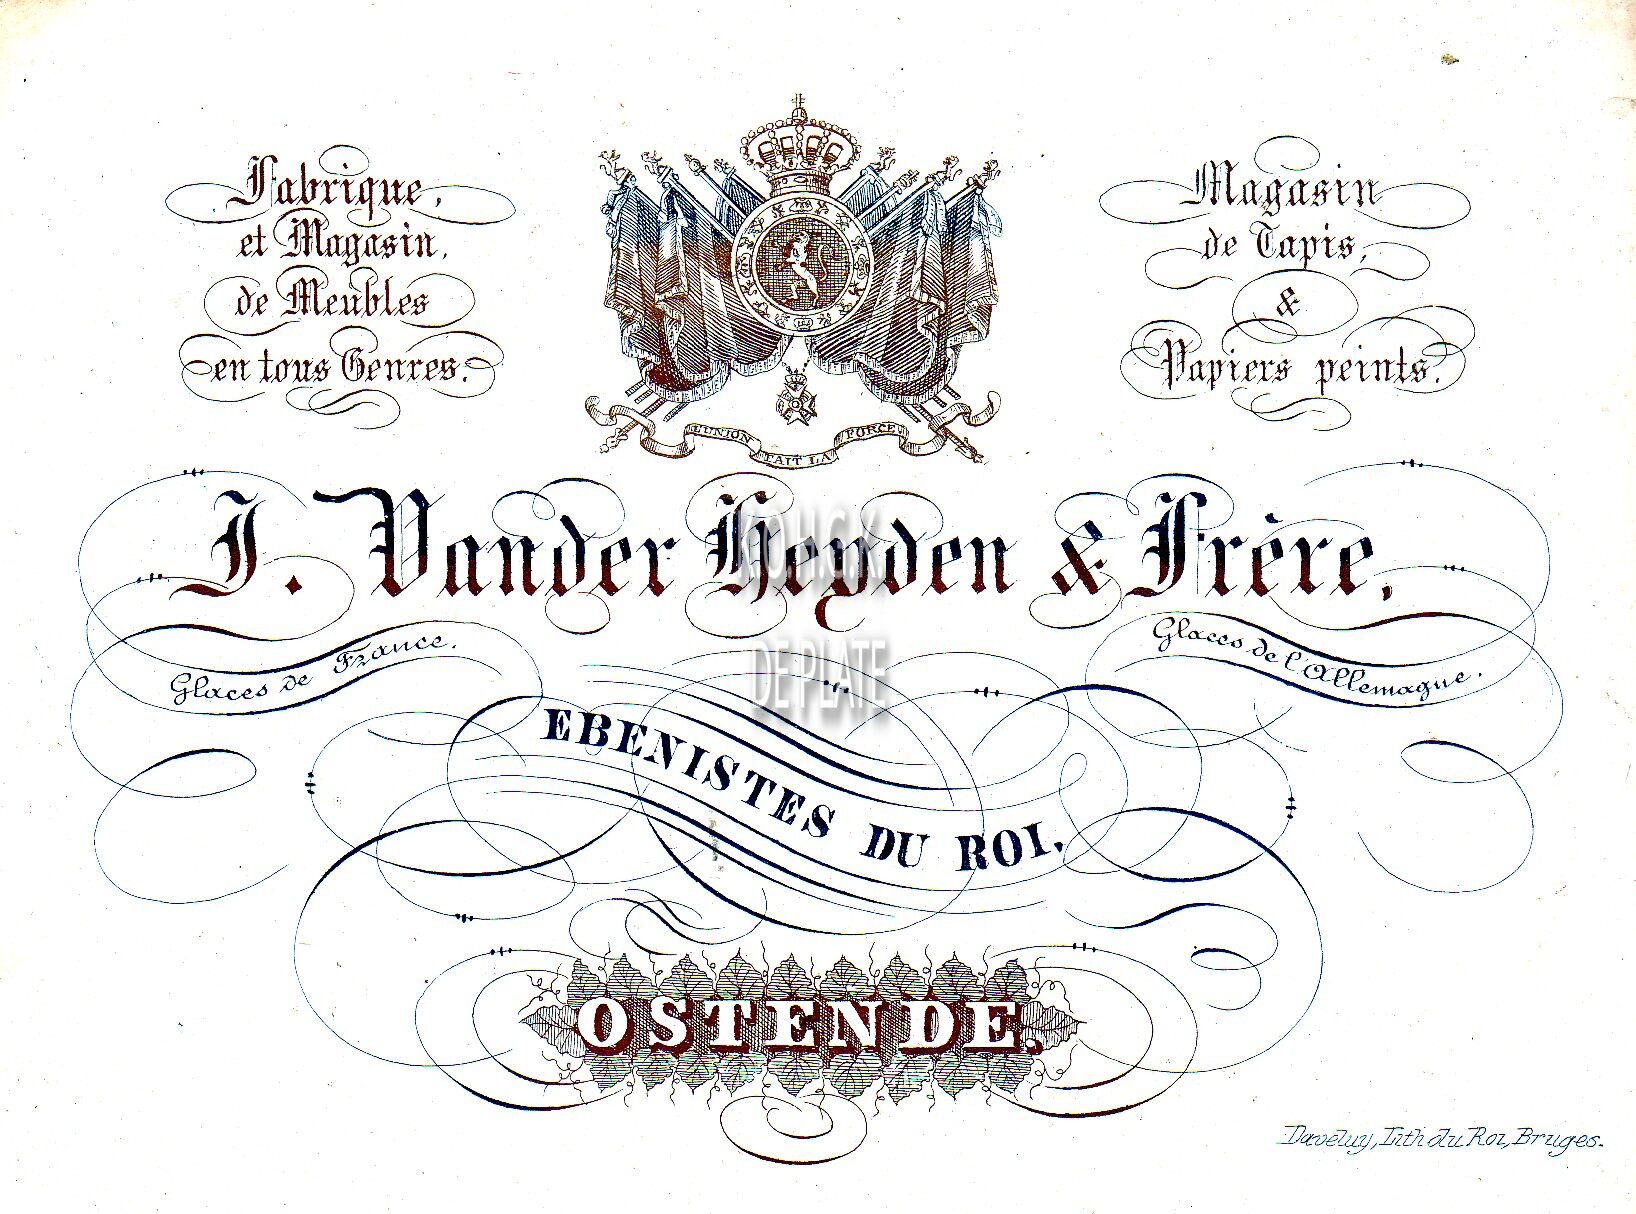 Fabrique,
et Magasin,
de Meubles
en tous Genres.
L'UNION FAIT LA FORCE
Magasin
de Tapis,
&
Papiers peints.
J. Vander Heyden & Frère,
K.O.H.G.K.
DE PLATE
Glaces de France.
Glaces de l'Allemagne.
EBENISTES DU ROI.
OSTENDE.
Daveluy, Lith du Roi, Bruges.